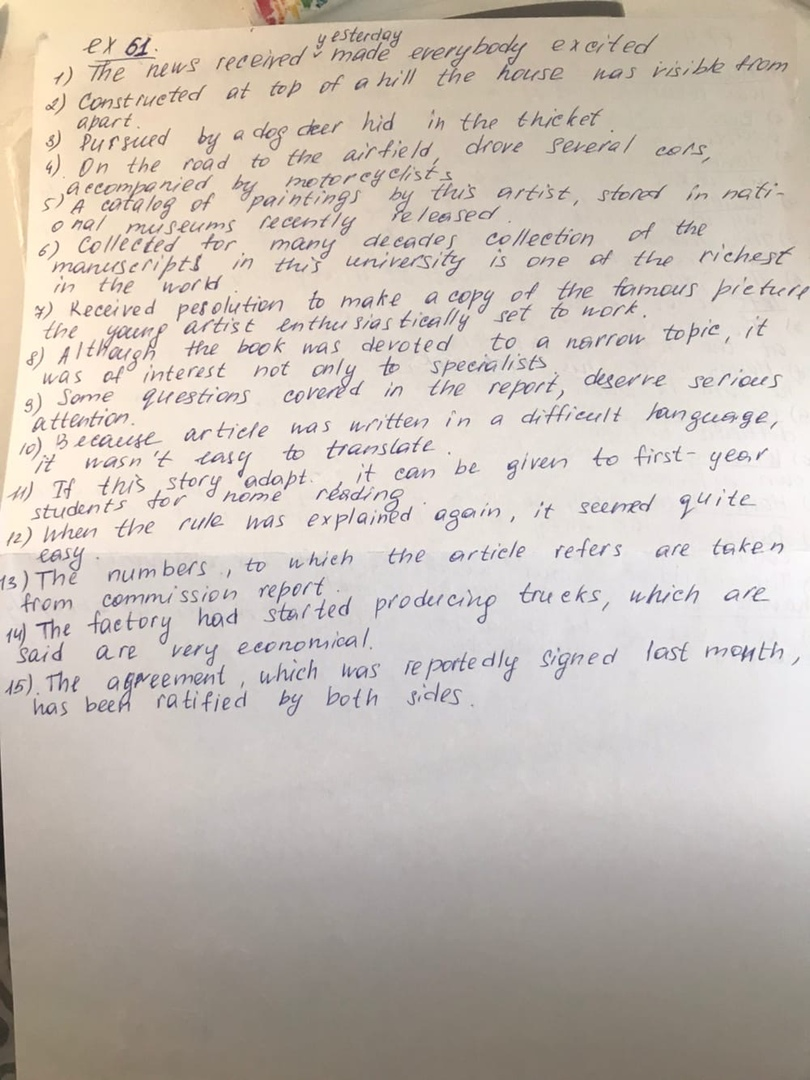 ex 61.
1) The news received yesterday made everybody excited
2) Constructed at top of a hill the house was visible from
apart.
3) Pursued by a dog deer hid in the thicket.
4). On the road to the airfield, drove several cars,
accompanied by motorcyclists
5) A catalog of paintings by this artist, stored in nati-
onal museums recently released.
6) Collected for many decades collection of the
manuscripts in this university is one of the richest
in the world.
7) Received pesolution to make a copy of the famous picture
the young artist enthusiastically set to work.
8) Although the book was devoted to a narrow topic, it
was of interest not only to specialists.
9) Some questions covered in the report, deserve serious
attention.
10) Because article was written in a difficult language,
it wasn't easy to translate.
11) If this story adapt. , it can be given to first-year
students for home reading.
12) When the rule was explained again, it seemed quite
easy.
13) The numbers, to which the article refers are taken
from commission report.
14) The factory had started producing trucks, which are
said are very economical.
15). The agreement, which was reportedly signed last month,
has been ratified by both sides.